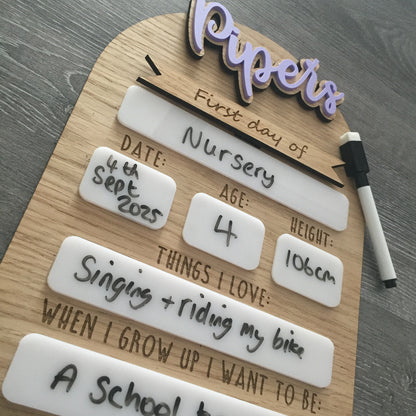 Pipers
First day of
Nursery
DATE: AGE: HEIGHT:
4th
Sept
2025
4
106cm
THINGS I LOVE:
Singing + riding my bike
WHEN I GROW UP I WANT TO BE:
A School